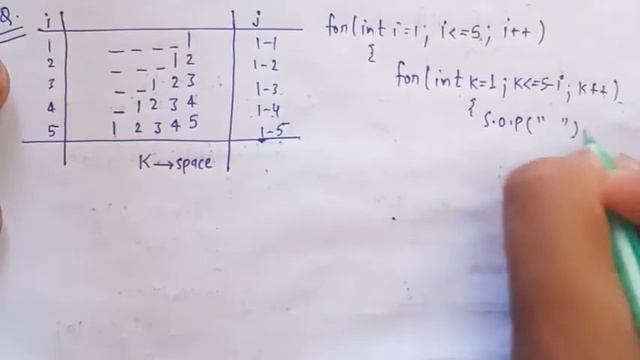 Q. i j
1 _ _ _ _ 1 1-1
2 _ _ _ 1 2 1-2
3 _ _ 1 2 3 1-3
4 _ 1 2 3 4 1-4
5 1 2 3 4 5 1-5
K→space
for(int i=1; i<=5; i++)
{
for(int k=1; k<=5-i; k++)
{
S.O.P(" ")